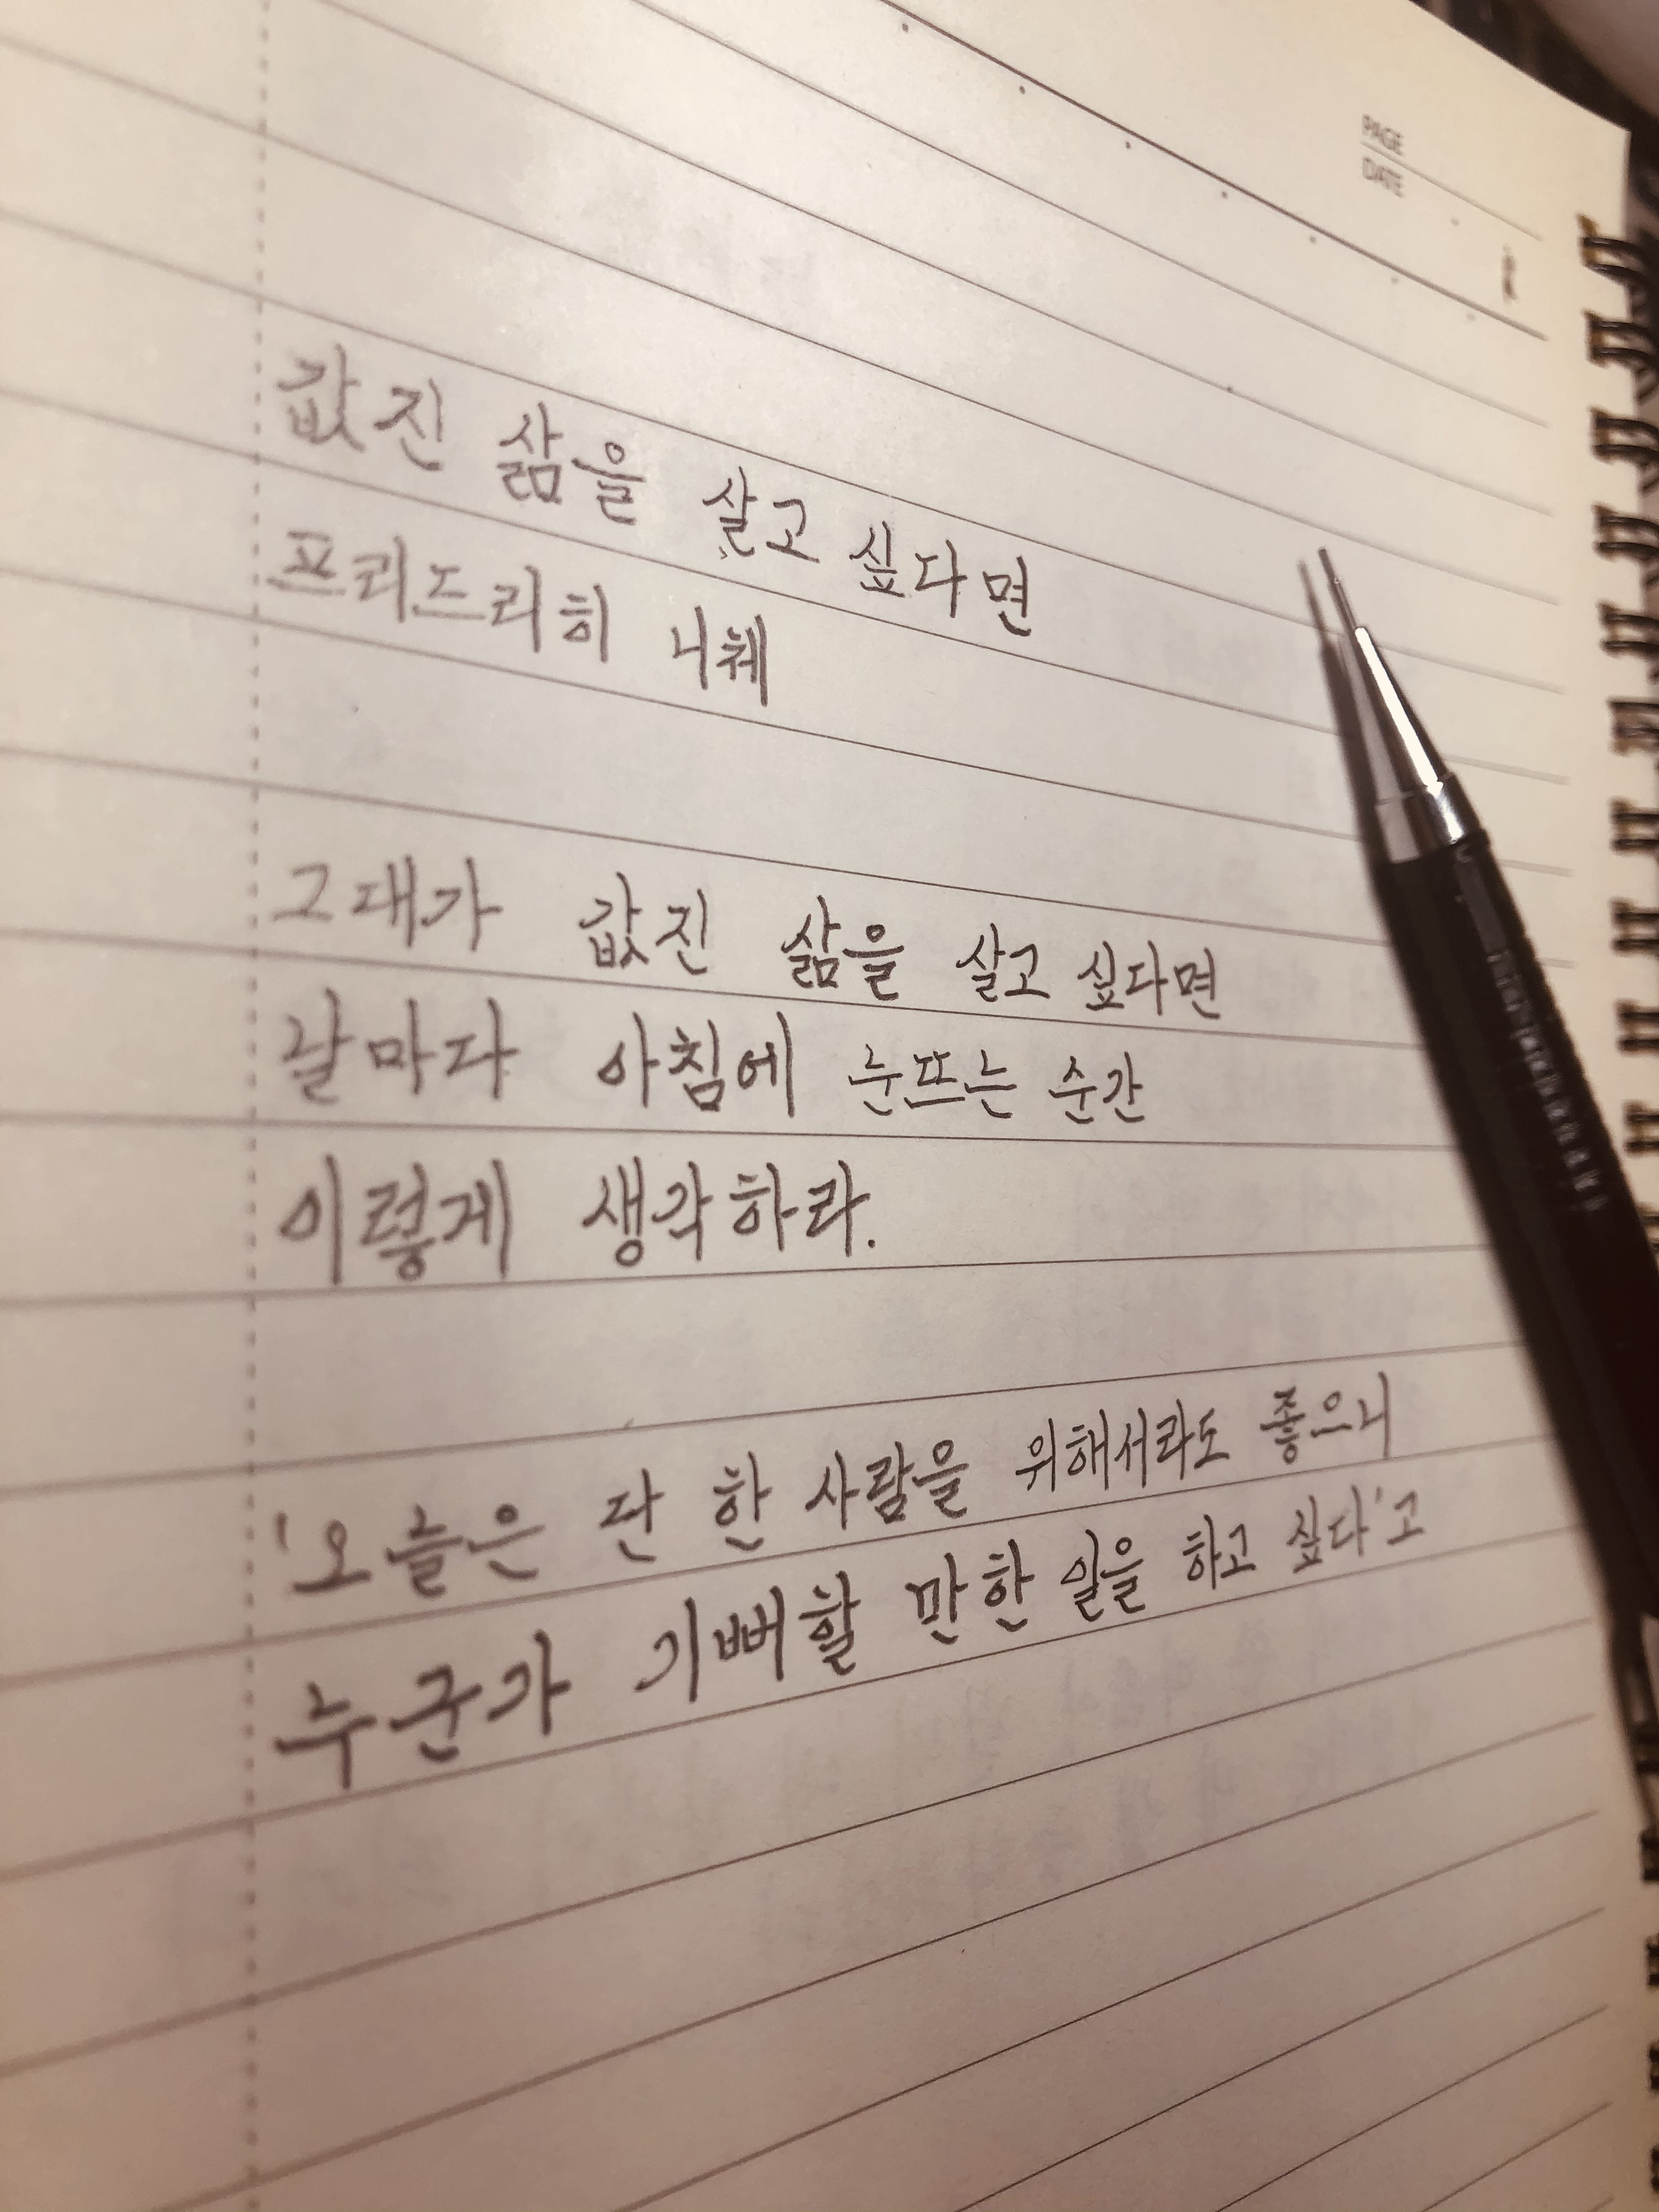 PAGE
DATE
값진 삶을 살고 싶다면
프리드리히 니체
그대가 값진 삶을 살고 싶다면
날마다 아침에 눈뜨는 순간
이렇게 생각하라.
'오늘은 단 한 사람을 위해서라도 좋으니
누군가 기뻐할 만한 일을 하고 싶다'고